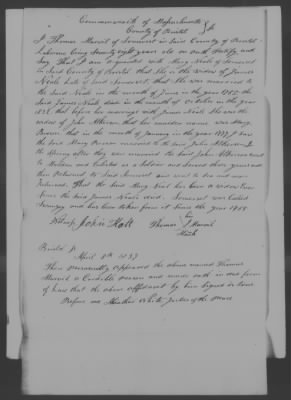 Commonwealth of Massachusetts
County of Bristol
I Thomas Marvel of Somerset in Said County of Bristol
Laborer being Seventy eight years old on oath testify and
Say That I am acquainted with Mary Neale of Somerset
in Said County of Bristol That She is the widow of James
Neale late of Said Somerset, that She was married to
the Said Neale in the month of June in the year the
Said James Neale died in the month of October in the year
that before her marriage with James Neale She was the
widow of John Atherton that her maiden name was Mary
Bowen that in the month of January in the year I saw
the said Mary Bowen married to the said John Atherton
the Spring after they were married the Said John Atherton went
to and as a Soldier and Served three years and
then returned to Said Somerset and went to Sea and never
Returned. That the Said Mary Neal has been a widow Ever
Since the Said James Neale died. Somerset was Called
Swanzey and has been taken from it Since the year
Witness John Holt Thomas Marvel
his
Mark
Bristol ss
April 8th 1837
Then Personally Appeared the above named Thomas
Marvel a Credible person and made oath in due form
of Law that the above affidavit by him Signed is true
Before me White Justice of the Peace